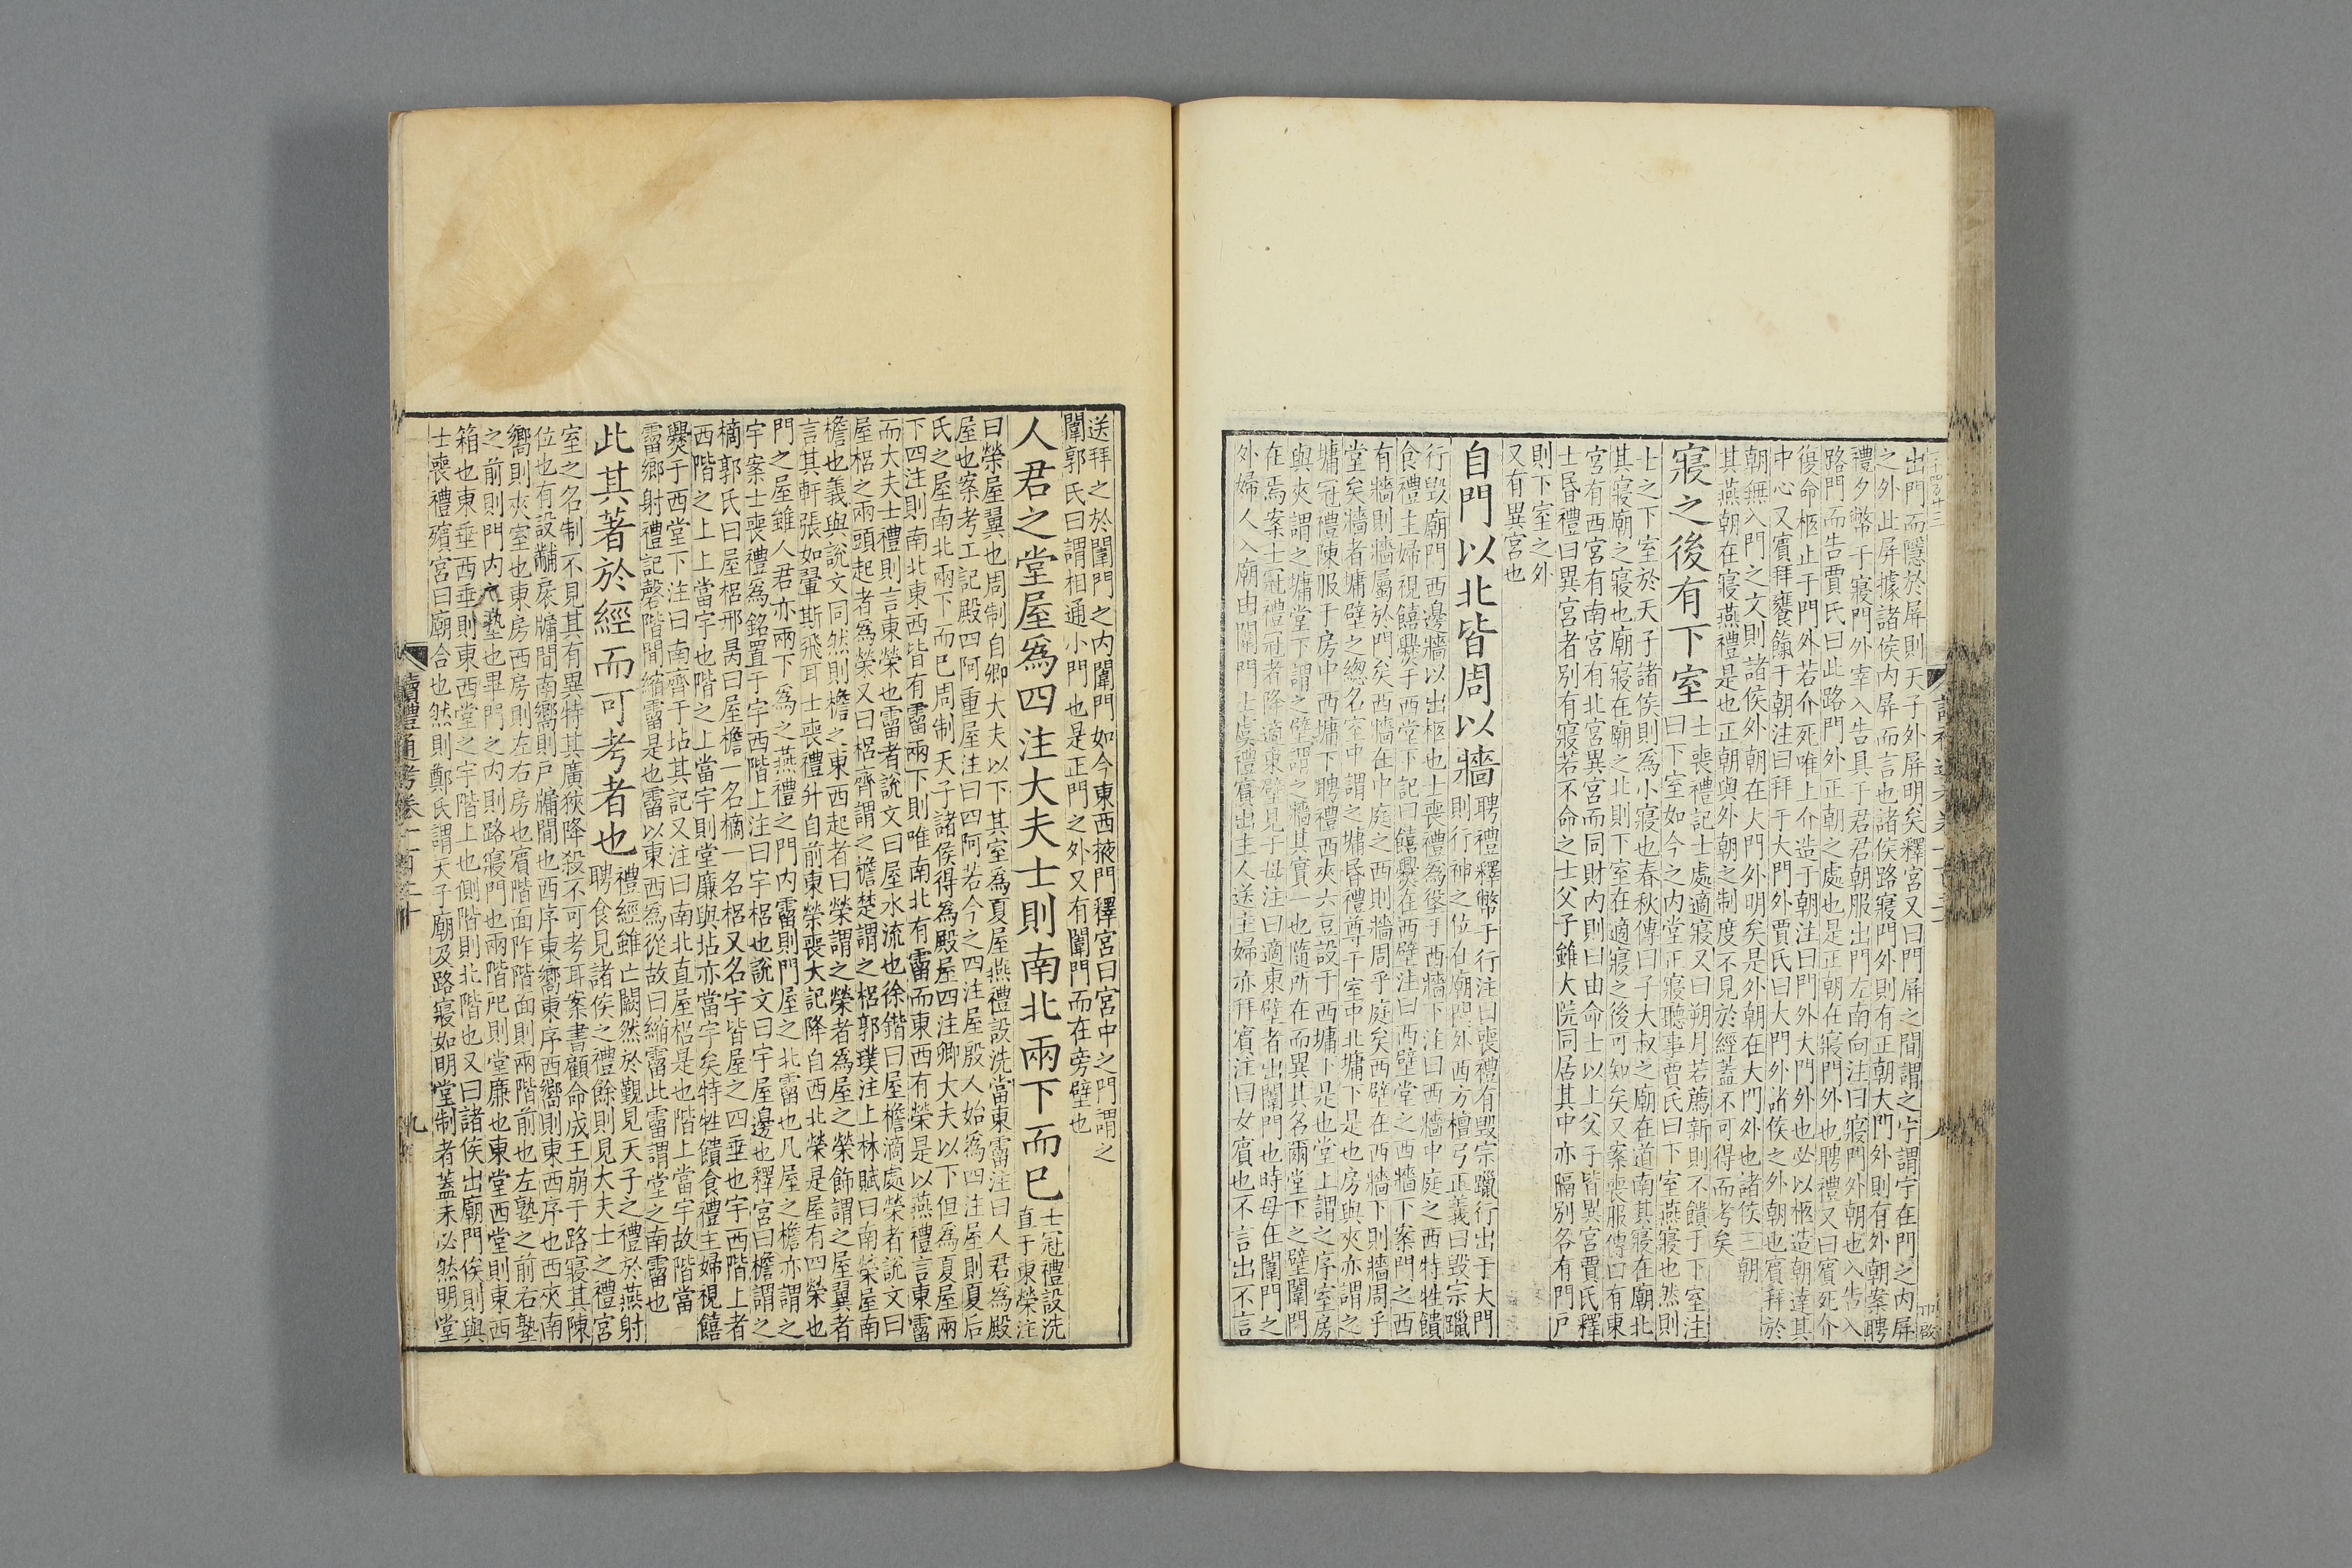 出門而隱於屏則天子外屏明矣釋宮又曰門屏之間謂之宁謂宁在門之內屏
之外此屏據諸侯內屏而言也諸侯路寢門外則有正朝大門外則有外朝案聘
禮夕幣于寢門外宰入告具于君君朝服出門左南向注曰寢門外朝也入告入
路門而告賈氏曰此路門外正朝之處也是正朝在寢門外也聘禮又曰賓死介
復命柩止于門外若介死唯上介造于朝注曰門外大門外也必以柩造朝達其
中心又賓拜饔餼于朝注曰拜于大門外賈氏曰大門外諸侯之外朝也賓拜於
朝無入門之文則諸侯外朝在大門外明矣是外朝在大門外也諸侯三朝
其燕朝在寢燕禮是也正朝與外朝之制度不見於經蓋不可得而考矣
寢之後有下室
士喪禮記士處適寢又曰朔月若薦新則不饋于下室注
曰下室如今之內堂正寢聽事賈氏曰下室燕寢也然則
士之下室於天子諸侯則為小寢也春秋傳曰子大叔之廟在道南其寢在廟北
其寢廟之寢也廟寢在廟之北則下室在適寢之後可知矣又案喪服傳曰有東
宮有西宮有南宮有北宮異宮而同財內則曰由命士以上父子皆異宮賈氏釋
士昏禮曰異宮者別有寢若不命之士父子雖大院同居其中亦隔別各有門戶
則下室之外
又有異宮也
自門以北皆周以牆
聘禮釋幣于行注曰喪禮有毀宗躐行出于大門
則行神之位在廟門外西方檀弓正義曰毀宗躐
行毀廟門西邊牆以出柩也士喪禮為垼于西牆下注曰西牆中庭之西特牲饋
食禮主婦視饎爨于西堂下記曰饎爨在西壁注曰西壁堂之西牆下案門之西
有牆則牆屬於門矣西牆在中庭之西則牆周乎庭矣西壁在西牆下則牆周乎
堂矣牆者墉壁之總名室中謂之墉昏禮尊于室中北墉下是也房與夾亦謂之
墉冠禮陳服于房中西墉下聘禮西夾六豆設于西墉下是也堂上謂之序室房
與夾謂之墉堂下謂之壁謂之牆其實一也隨所在而異其名爾堂下之壁闈門
在焉案士冠禮冠者降適東壁見于母注曰適東壁者出闈門也時母在闈門之
外婦人入廟由闈門士虞禮賓出主人送主婦亦拜賓注曰女賓也不言出不言
送拜之於闈門之內闈門如今東西掖門釋宮曰宮中之門謂之
闈郭氏曰謂相通小門也是正門之外又有闈門而在旁壁也
人君之堂屋為四注大夫士則南北兩下而已
士冠禮設洗
直于東榮注
曰榮屋翼也周制自卿大夫以下其室為夏屋燕禮設洗當東霤注曰人君為殿
屋也案考工記殷四阿重屋注曰四阿若今之四注屋殷人始為四注屋則夏后
氏之屋南北兩下而已周制天子諸侯得為殿屋四注卿大夫以下但為夏屋兩
下四注則南北東西皆有霤兩下則唯南北有霤而東西有榮是以燕禮言東霤
而大夫士禮則言東榮也霤者說文曰屋水流也徐鍇曰屋檐滴處榮者說文曰
屋梠之兩頭起者為榮又曰梠齊謂之檐楚謂之梠郭璞注上林賦曰南榮屋南
檐也義與說文同然則檐之東西起者曰榮謂之榮者為屋之榮飾謂之屋翼者
言其軒張如翬斯飛耳士喪禮升自前東榮喪大記降自西北榮是屋有四榮也
門之屋雖人君亦兩下為之燕禮之門內霤則門屋之北霤也凡屋之檐亦謂之
宇案士喪禮為銘置于宇西階上注曰宇梠也說文曰宇屋邊也釋宮曰檐謂之
樀郭氏曰屋梠邢昺曰屋檐一名樀一名梠又名宇皆屋之四垂也宇西階上者
西階之上上當宇也階之上當宇則堂廉與坫亦當宇矣特牲饋食禮主婦視饎
爨于西堂下注曰南齊于坫其記又注曰南北直屋梠是也階上當宇故階當
霤鄉射禮記磬階間縮霤是也霤以東西為從故曰縮霤此霤謂堂之南霤也
此其著於經而可考者也
禮經雖亡闕然於覲見天子之禮於燕射
聘食見諸侯之禮餘則見大夫士之禮宮
室之名制不見其有異特其廣狹降殺不可考耳案書顧命成王崩于路寢其陳
位也有設黼扆牖間南嚮則戶牖間也西序東嚮東序西嚮則東西序也西夾南
嚮則夾室也東房西房則左右房也賓階面阼階面則兩階前也左塾之前右塾
之前則門內之塾也畢門之內則路寢門也兩階戺則堂廉也東堂西堂則東西
箱也東垂西垂則東西堂之宇階上也側階則北階也又曰諸侯出廟門俟則與
士喪禮殯宮曰廟合也然則鄭氏謂天子廟及路寢如明堂制者蓋未必然明堂
讀禮通考卷一百二十
九